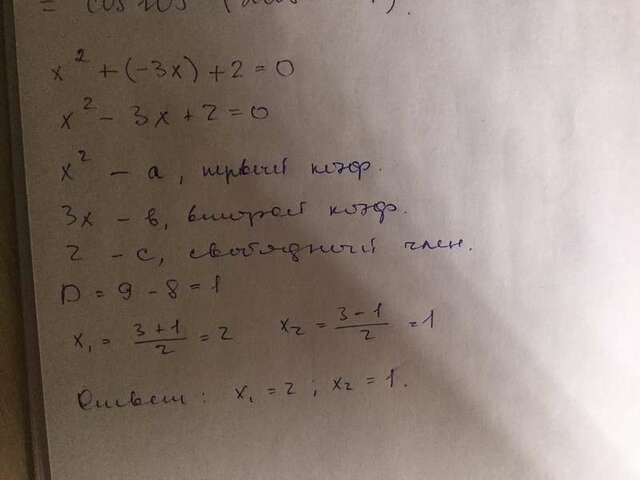 x² + (-3x) + 2 = 0
x² - 3x + 2 = 0
x² - a, первый коэф.
3x - в, второй коэф.
2 - с, свободный член.
D = 9 - 8 = 1
x₁ = (3 + 1)/2 = 2 x₂ = (3 - 1)/2 = 1
Ответ: x₁ = 2; x₂ = 1.